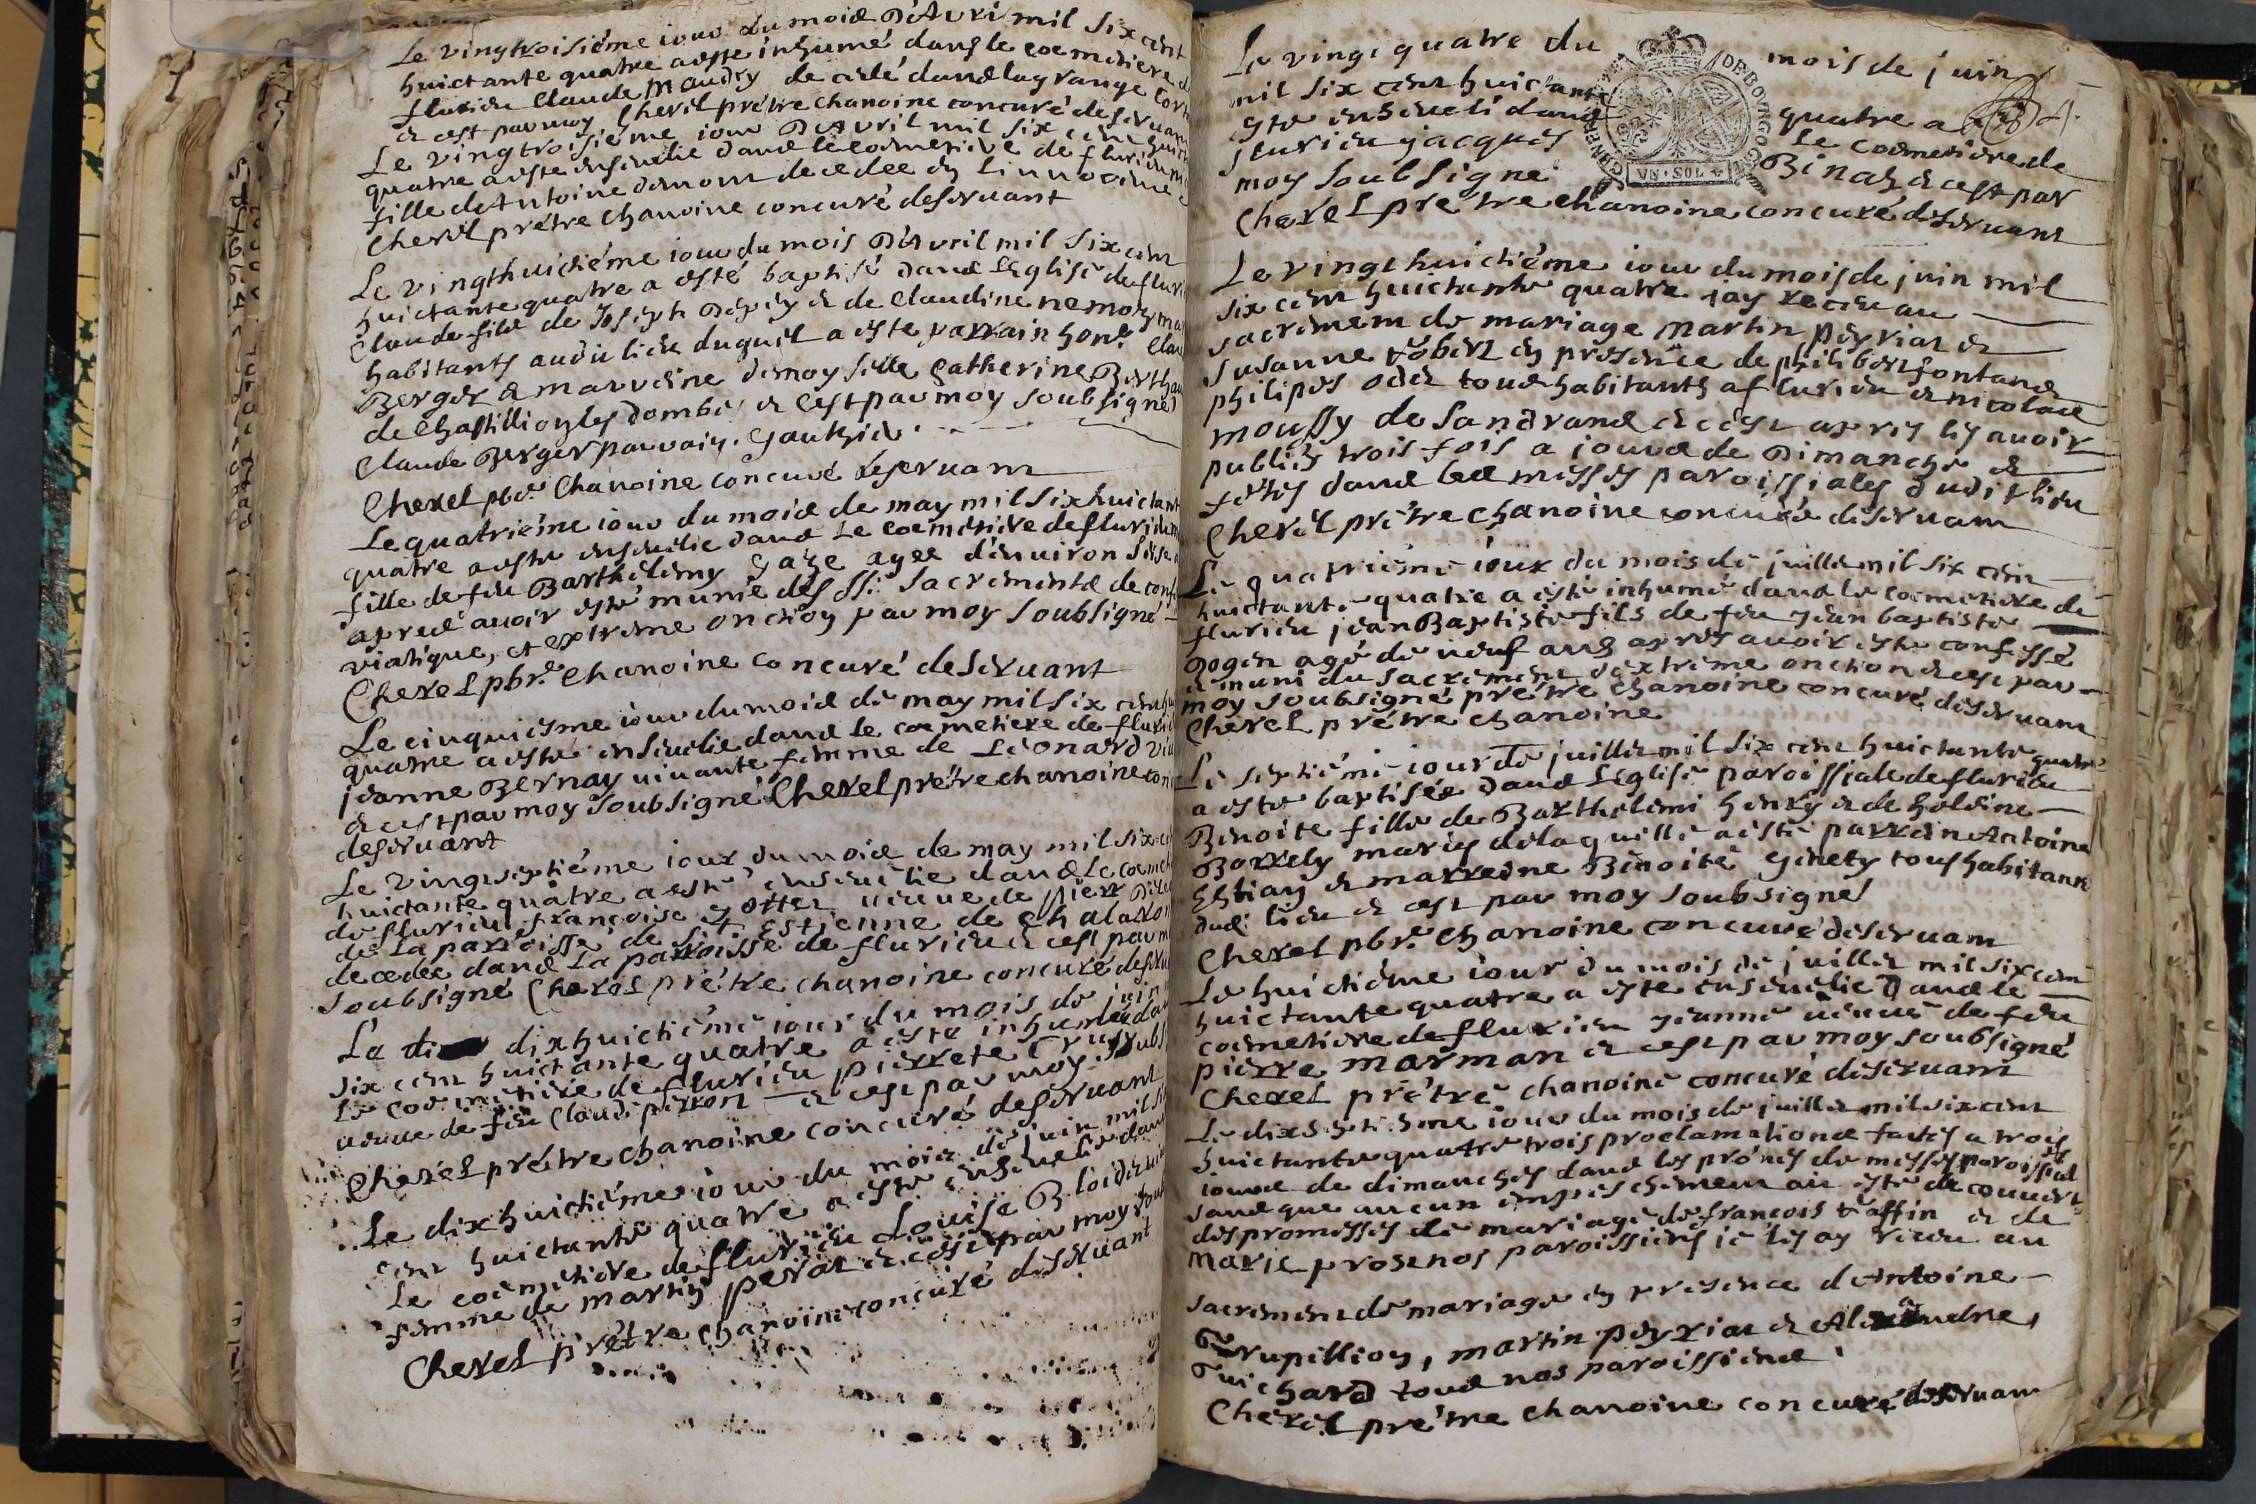 Le vingtroisiéme iour du mois D'Avri mil six cent
huictante quatre a esté inhumé dans le coemetiere d
flurieu Claude Maudry de celé dans la grange
et cest par moy Cherel prétre chanoine concuré deseruant
Le vingtroisiéme iour D'Avril mil six cent huict
quatre a esté enseuelie dans le coemetiere de flurieu
fille de Antoine decedee en linnocence
Cherel prétre chanoine concuré deseruant
Le vingthuictiéme iour du mois D'Avril mil six cent
huictante quatre a esté baptisé dans L'Eglise de fluri
Claude fils de Joseph Depey et de Claudine nemoz
habitants audit lieu duquel a esté parrain hon. Clau
Berger et marreine demoyselle Catherine Berthau
de Chastillion les dombes et cest par moy soubsigné
Claude Berger parrain. Gauthier
Cherel pbr. Chanoine concuré deseruant
Le quatriéme iour du mois de may mil six huictant
quatre a esté enseuelie dans Le coemetiere de flurieu
fille de feu Barthelemy Gaze agee d'enuiron seise
apres auoir esté munie des ss: sacrements de conf
viatique, et extreme onction par moy soubsigné
Cherel pbr. chanoine concuré deseruant
Le cinquiesme iour du mois de may mil six cent hu
quatre a esté enseuelie dans le coemetiere de fluri
jeanne Bernay viuante femme de Leonard
et cest par moy soubsigné Cherel prétre chanoine con
deseruant
Le vingtseptiéme iour du mois de may mil six c
huictante quatre a esté enseuelie dans le coeme
de flurieu françoise veuue de piere
de la parroisse de st. Estienne de chalaron
decedée dans la parroisse de flurieu et cest par m
soubsigné Cherel prétre chanoine concuré deseru
Le dixhuictiéme iour du mois de juin
six cent huictante quatre a esté inhumée dan
Le coemetiere de flurieu pierrete soubs
veuue de feu Claude perron et cest par moy
Cherel prétre chanoine concuré deseruant
Le dixhuictiéme iour du mois de juin mil si
cent huictante quatre a esté enseuelie dans
Le coemetiere de flurieu Louise
femme de Martin perat et cest par moy soub
Cherel prétre chanoine concuré deseruant
Le vingt quatre du mois de juin
mil six cent huictante quatre a
esté enseueli dans le coemetiere de
flurieu jacques Binah et cest par
moy soubsigné
Cherel prétre chanoine concuré deseruant
GENER DE BOVRGOG
VN · SOL
Le vingt huictiéme iour du mois de juin mil
six cent huictante quatre jay receu au
sacrement de mariage Martin peyriat et
Susanne robert en presence de philibert fontane
philipes odet tous habitants a flurieu et nicolas
moussy de Sandrans et cest apres les auoir
publies trois fois a jours de Dimanche et
fetes dans les messes paroissiales dudit lieu
Cherel prétre chanoine concuré deseruant
Le quatriéme iour du mois de juillet mil six cent
huictante quatre a esté inhumé dans le coemetiere de
flurieu jean Baptiste fils de feu jean baptiste
gogen agé de neuf ans apres auoir esté confessé
et muni du sacrement d'extreme onction et cest par
moy soubsigné prétre chanoine concuré deseruant
Cherel prétre chanoine
Le septiéme iour de juillet mil six cent huictante quatre
a esté baptisée dans L'Eglise paroissiale de flurieu
Benoite fille de Barthelemi henry et de heleine
Borrely maries de laquelle a esté parrein Antoine
Estian et marreine Benoite ginety tous habitants
dud: lieu et cest par moy soubsigné
Cherel pbr. chanoine concuré deseruant
Le huictiéme iour du mois de juillet mil six cent
huictante quatre a esté enseuelie Dans le
coemetiere de flurieu jeanne veuue de feu
pierre marman et cest par moy soubsigné
Cherel prétre chanoine concuré deseruant
Le dixseptiéme iour du mois de juillet mil six cent
huictante quatre trois proclamations faites a trois
iours de dimanches dans les prónes de messes paroissiales
sans que aucun empeschement aie esté decouuert
des promesses de mariage de francois taffin et de
Marie prost nos paroissiens je les ay receu au
sacrement de mariage en presence d'Antoine
Grupillion, martin peyriat et Alexandre
Guichard tous nos paroissiens
Cherel prétre chanoine concuré deseruant